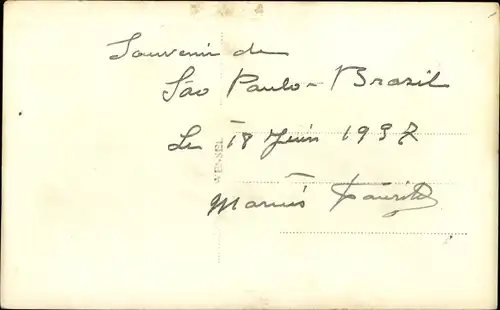 Souvenir de
São Paulo - Brazil
Le 18 Juin 1937
WESSEL
Marius